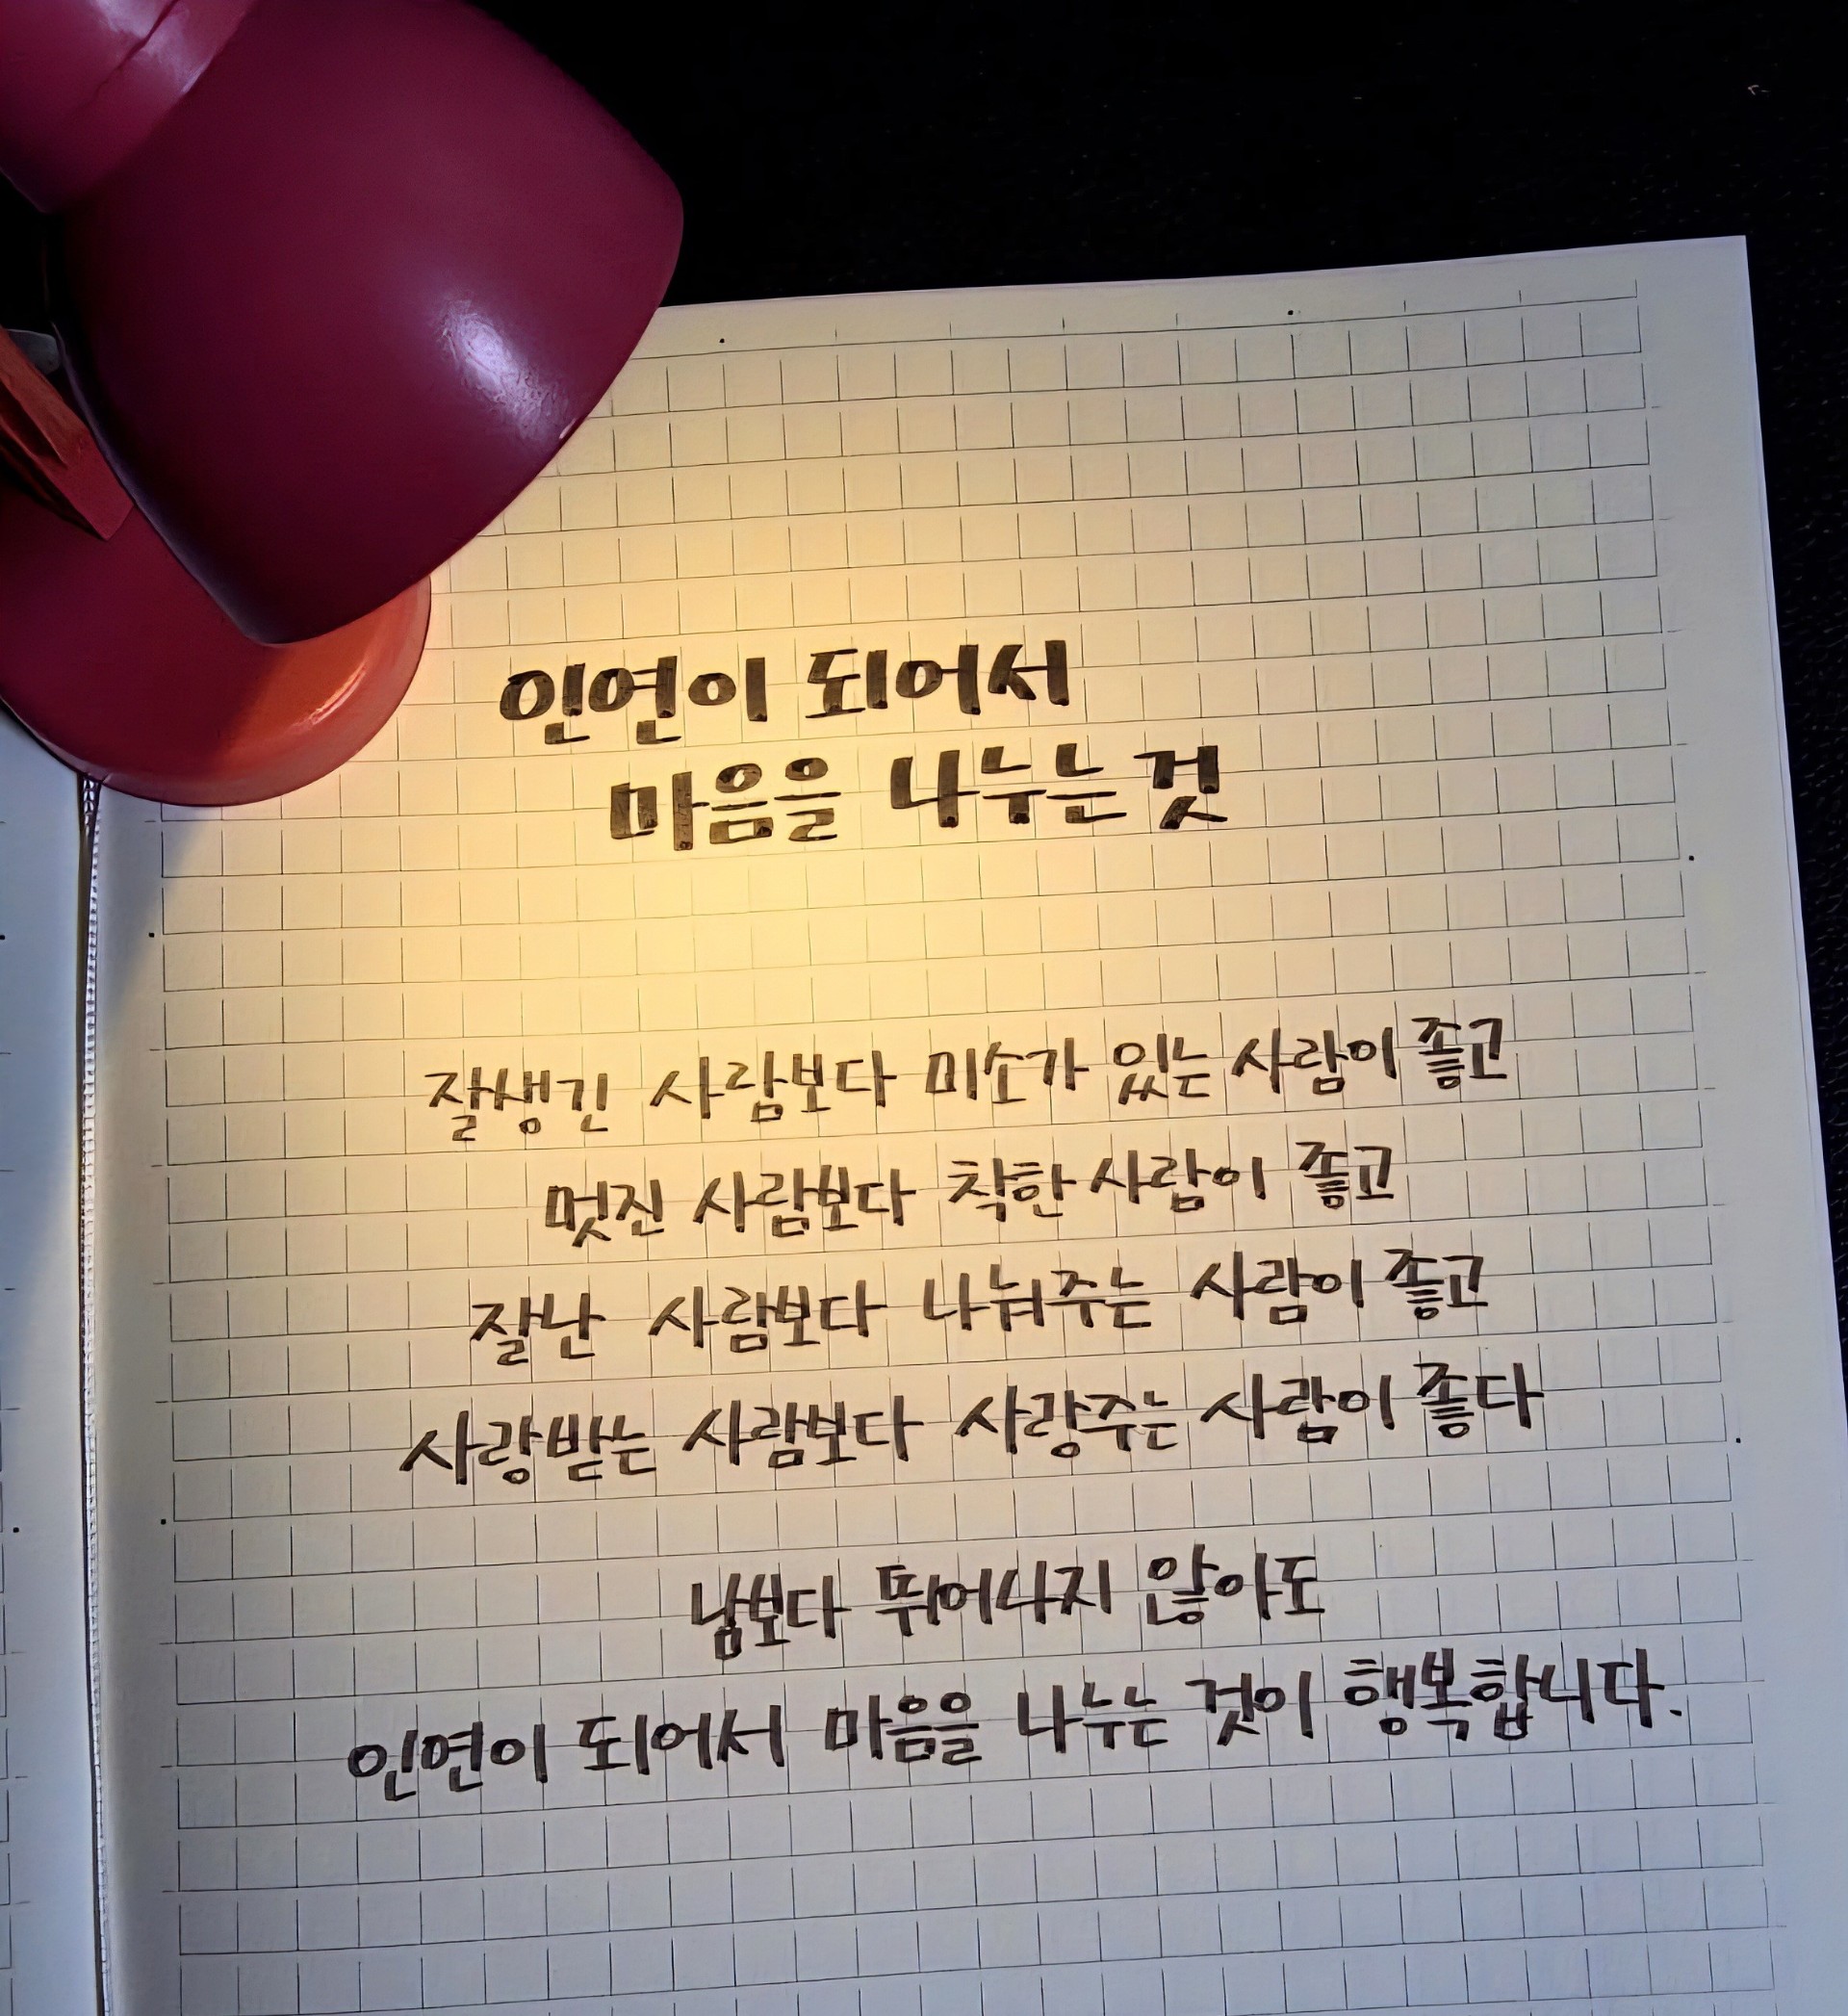 인연이 되어서
마음을 나누는 것
잘생긴 사람보다 미소가 있는 사람이 좋고
멋진 사람보다 착한 사람이 좋고
잘난 사람보다 나눠주는 사람이 좋고
사랑받는 사람보다 사랑주는 사람이 좋다
남보다 뛰어나지 않아도
인연이 되어서 마음을 나누는 것이 행복합니다.